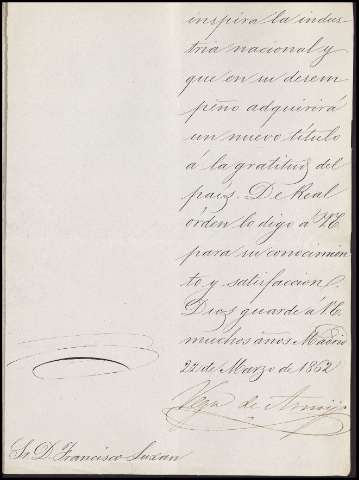 inspira la indus
tria nacional y
que en su desem
peño adquirirá
un nuevo título
á la gratitud del
país. De Real
órden lo digo á VE
para su conocimien
to y satisfaccion.
Dios guarde á VE
muchos años Madrid
22 de Marzo de 1862
Vega de Armijo
Sr. D. Francisco Luxan